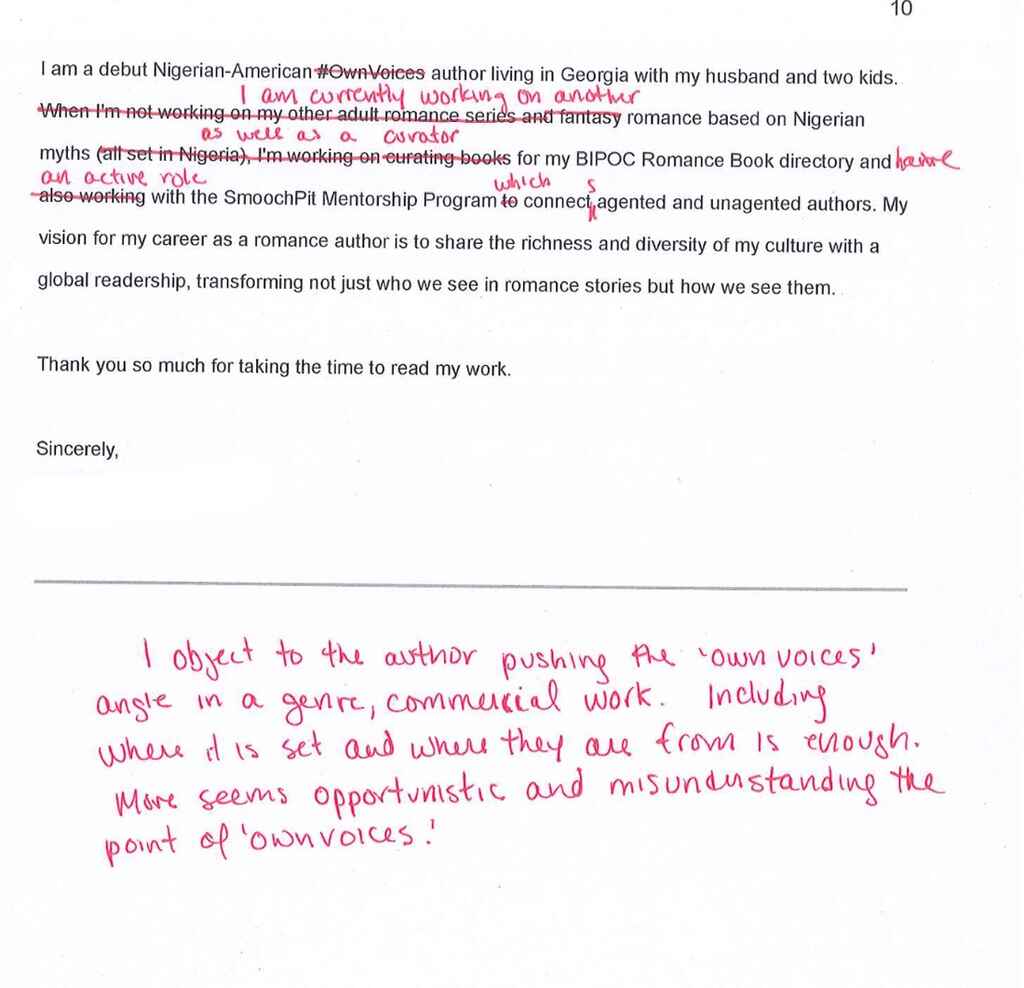 10
I am a debut Nigerian-American #OwnVoices author living in Georgia with my husband and two kids.
I am currently working on another
When I'm not working on my other adult romance series and fantasy romance based on Nigerian
as well as a curator
myths (all set in Nigeria), I'm working on curating books for my BIPOC Romance Book directory and have
an active role
which s
also working with the SmoochPit Mentorship Program to connect agented and unagented authors. My
vision for my career as a romance author is to share the richness and diversity of my culture with a
global readership, transforming not just who we see in romance stories but how we see them.
Thank you so much for taking the time to read my work.
Sincerely,
I object to the author pushing the 'own voices'
angle in a genre, commercial work. Including
where it is set and where they are from is enough.
More seems opportunistic and misunderstanding the
point of 'own voices!'